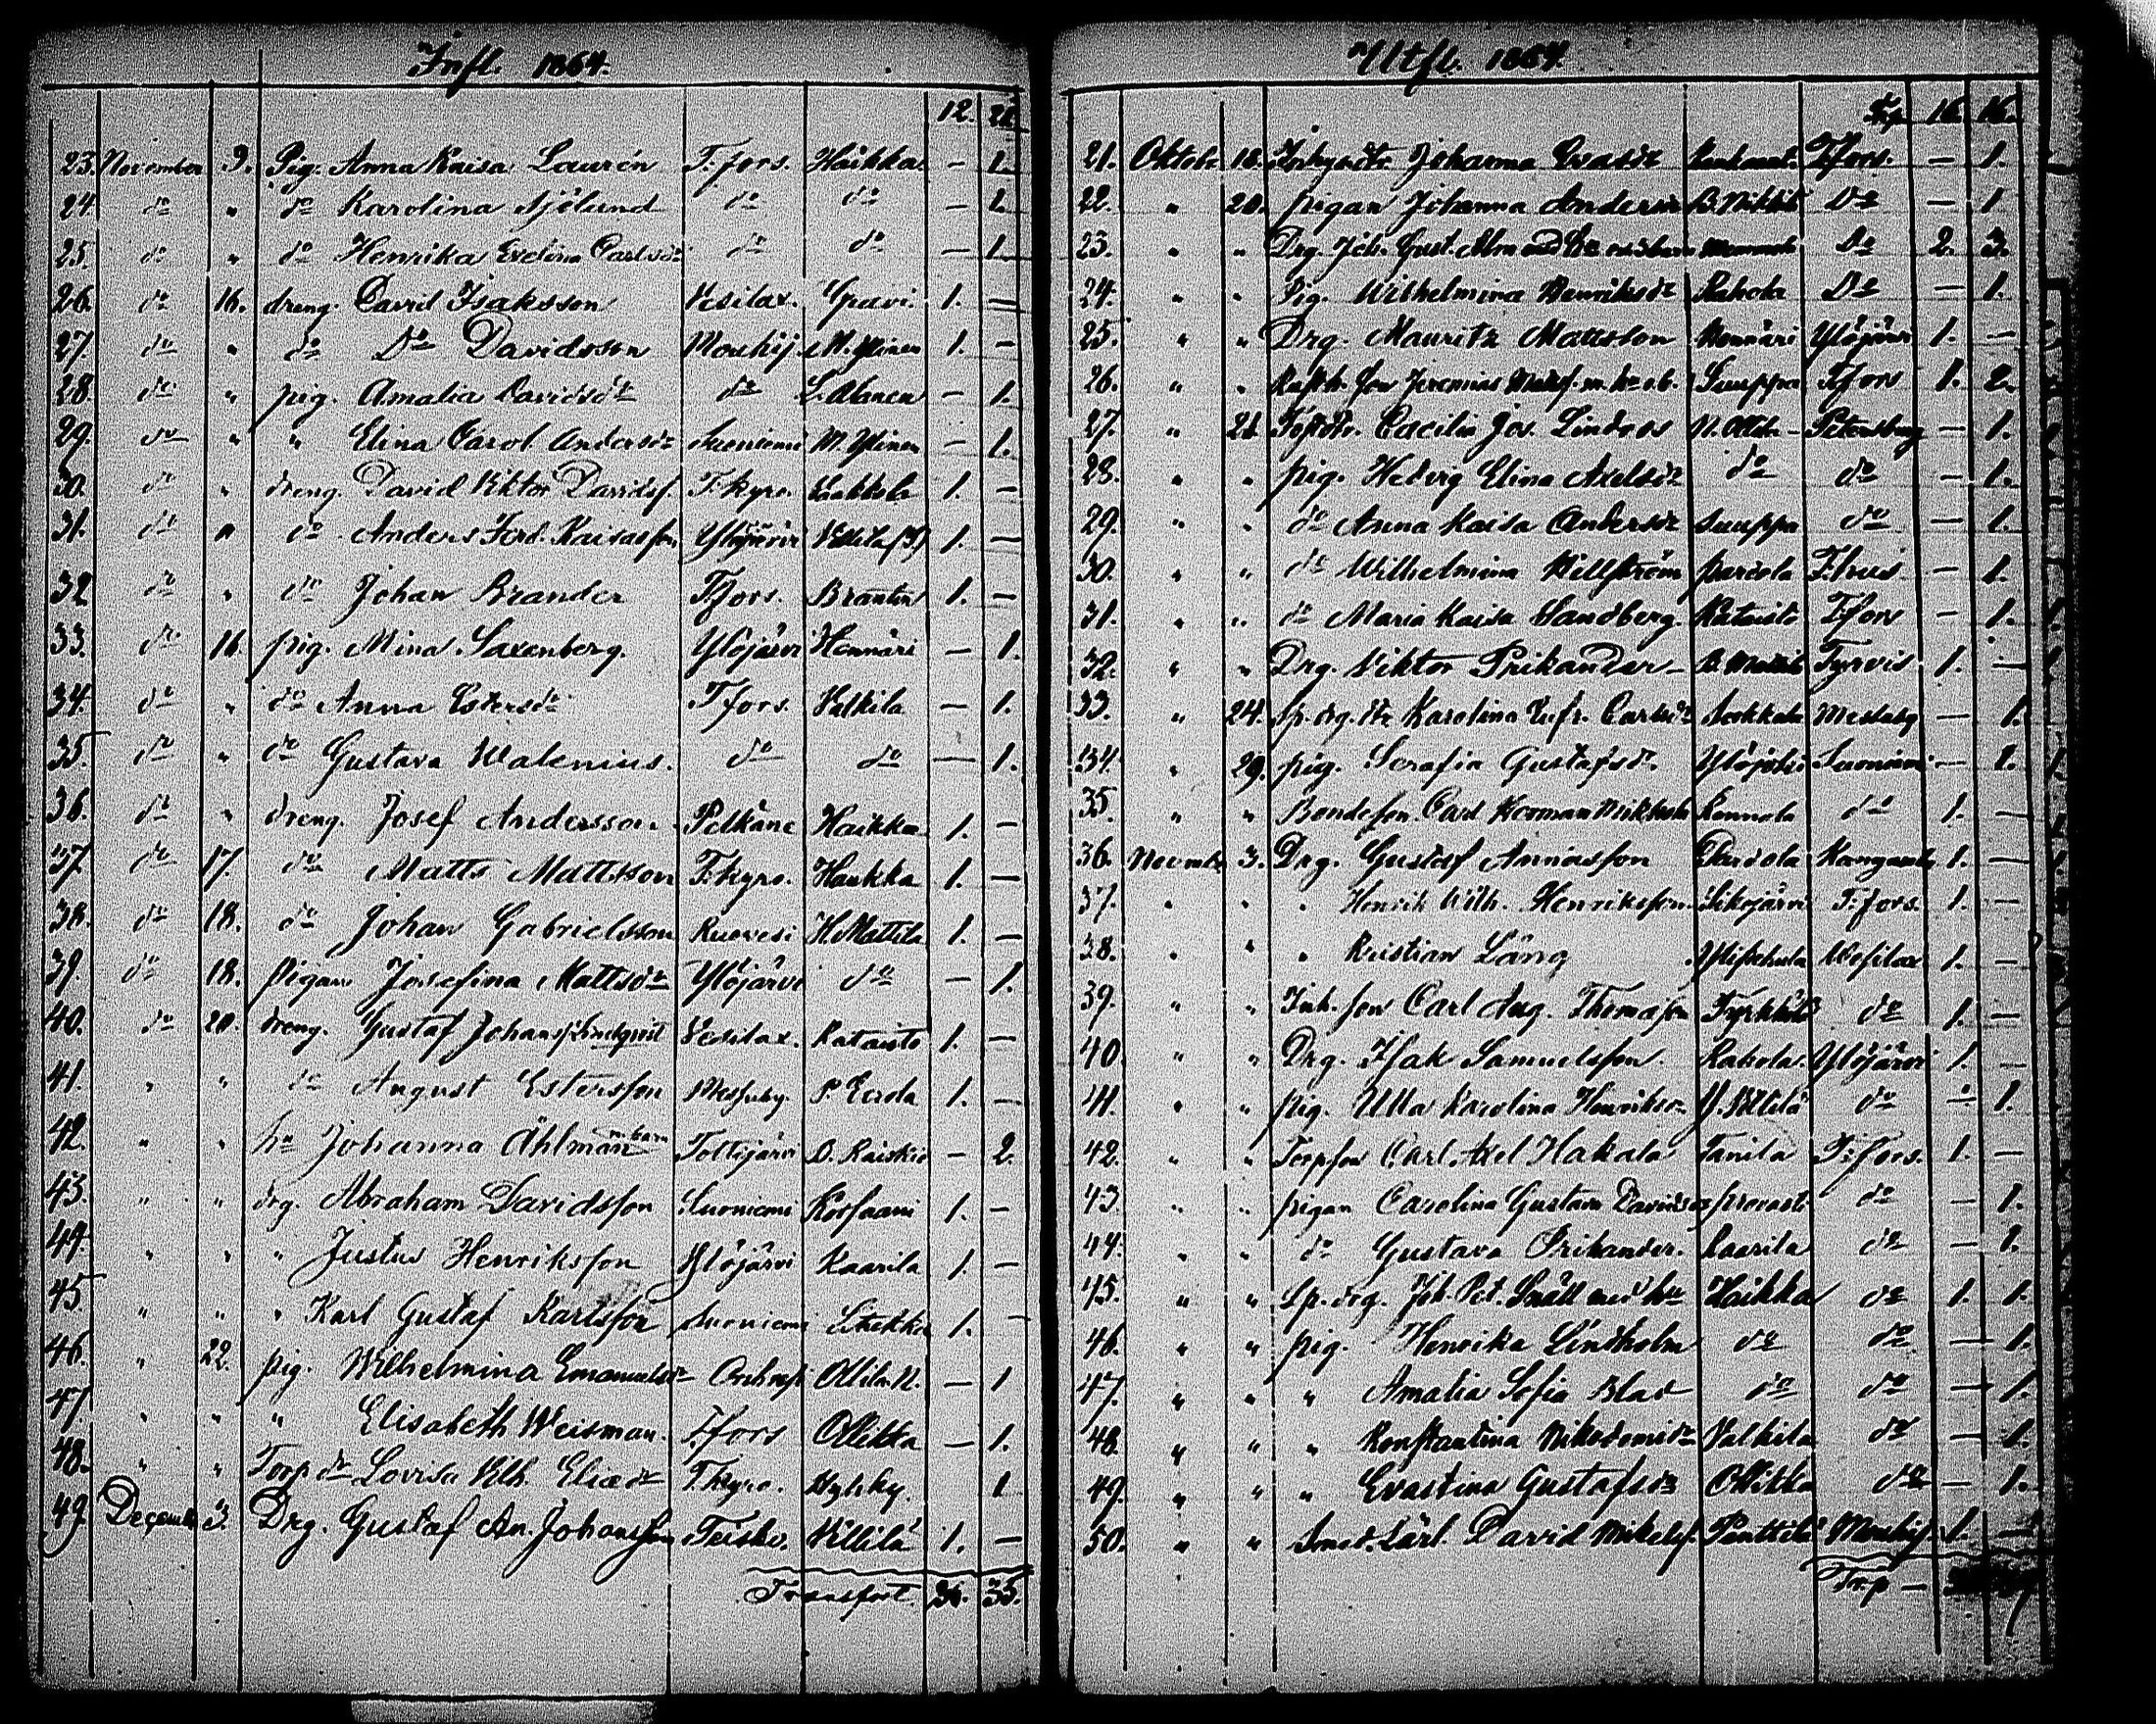 Infl. 1864.
12. 22
23. November 9. Pig. Anna Kaisa Laurén T.fors. Haikka. — 1.
24 do " do Karolina Sjölund do do — 1.
25. do " do Henrika Evelina Carlsdr do do — 1.
26. do 16. dreng. David Isaksson Vesilax. Gravi. 1. —
27. do " do Do Davidsson Mouhij. M. Ylinen 1. —
28. do " pig. Amalia Davidsdr do L. Alanen — 1.
29. do " " Elina Carol. Andersdr Suoniemi M. Ylinen — 1.
30. do " dreng. David Viktor Davidsf. T.kyro. 1. —
31. do " do Anders Ferd. Kaisasson Ylöjärvi Villilä 1. —
32 do " do Johan Brander T.fors. 1. —
33. do 16. pig. Mina Saxenberg. Ylöjärvi Hennäri — 1.
34. do " do Anna Estersdr T.fors. Valkila — 1.
35 do " do Gustava Walenius. do do — 1.
36. do " dreng. Josef Andersson Pelkäne Haikka 1. —
37. do 17. do Matts Mattsson T.kyro. Haukka 1. —
38. do 18. do Johan Gabrielsson Ruovesi H. Mattila 1. —
39. do 18. pigan Josefina Mattsdr Ylöjärvi do — 1.
40. do 20. dreng. Gustaf Johansf. Lindqvist Vesilax. Kataisto 1. —
41. " " do August Estersson Messuby. P. Eerola 1. —
42. " " hu Johanna Åhlman m. barn Tottijärvi — 2.
43. " " drg. Abraham Davidsson Suoniemi 1. —
44. " " " Justus Henriksson Ylöjärvi Kaarila 1. —
45 " " " Karl Gustaf Karlsson Suoniemi 1. —
46. " 22. pig. Wilhelmina Emanuelsdr Orihvesi Ollila. N. — 1
47. " " " Elisabeth Weisman. T.fors Ollikka — 1.
48. " " Torp dr Lovisa Vilh. Eliædr T.kyro. Hyhky. 1
49. Decemb. 3. Drg. Gustaf An. Johansson Teisko. Villilä 1. —
Transport 35.
Utfl. 1864.
Trp 16. 16.
21. Oktob. 18. Johanna Evasdr T.fors. — 1.
22. " 20. pigan Johanna Andersdr Do — 1
23. " " Drg. Joh. Gust. Do 2. 3.
24. " " Pig. Wilhelmina Henriksdr Rahola Do — 1.
25. " " Drg. Mauritz Mattsson Hennäri Ylöjärvi 1. —
26. " " Jeremias Matsf. m. hu o. b. Suuppa T.fors 1. 2.
27. " 21. Cæcilia Jos. Lindroos N. Ollila Petersburg — 1.
28. " " pig. Hedvig Elina Axelsdr do do — 1.
29. " " do Anna Kaisa Andersdr Suuppa do — 1.
30. " " do Wilhelmina Hellström — 1.
31. " " do Maria Kaisa Sandberg Kataisto T.fors — 1.
32. " " Drg. Viktor Prikander Tyrvis 1. —
33. " 24. Sp. drg. dr Karolina Eufr. Carlsdr Messuby — 1.
34. " 29. pig. Serafia Gustafsdr. Suoniemi — 1.
35 " " Bondeson Carl Herman do 1. —
36. Novemb. 3. Drg. Gustaf Anniasson 1. —
37. " " " Henrik Wilh. Henriksson Sikojärvi T.fors. 1. —
38. " " " Kristian Lång Vesilax 1. —
39. " " Inh. son Carl Aug. Thomasson do 1. —
40. " " Drg. Isak Samuelsson Rahola. Ylöjärvi 1. —
41. " " pig. Ulla Karolina Henriksdr Y. Villilä do — 1.
42. " " Torpson Carl Axel Hakala Tanila T.fors. 1. —
43. " " pigan Carolina Gustava Davidsdr do — 1.
44. " " do Gustava Prikander. Kaarila do — 1.
45. " " Sp. drg. Joh. Pet. Snäll med hu Haikka do 1. 1.
46. " " pig. Henrika Lindholm do do — 1.
47. " " " Amalia Sofia Blad do do — 1.
48 " " " Konstantina Nikodemidr Valkila do — 1.
49. " " " Evastina Gustafsdr Ollikka do — 1.
50. " " Smed. Lärl. David Mikelsf. Penttilä Mouhij. 1. —
Trp —